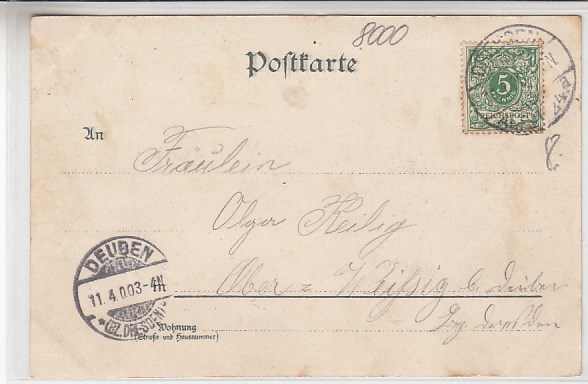 8000
Postkarte
DRESDEN
5
REICHSPOST
An
Fräulein
Olga Heilig
Ober = Weissig b. Deuben
Bz. Dresden
DEUBEN
11. 4. 00 3-4N
*(BZ. DRESDEN)
Wohnung
(Straße und Hausnummer)